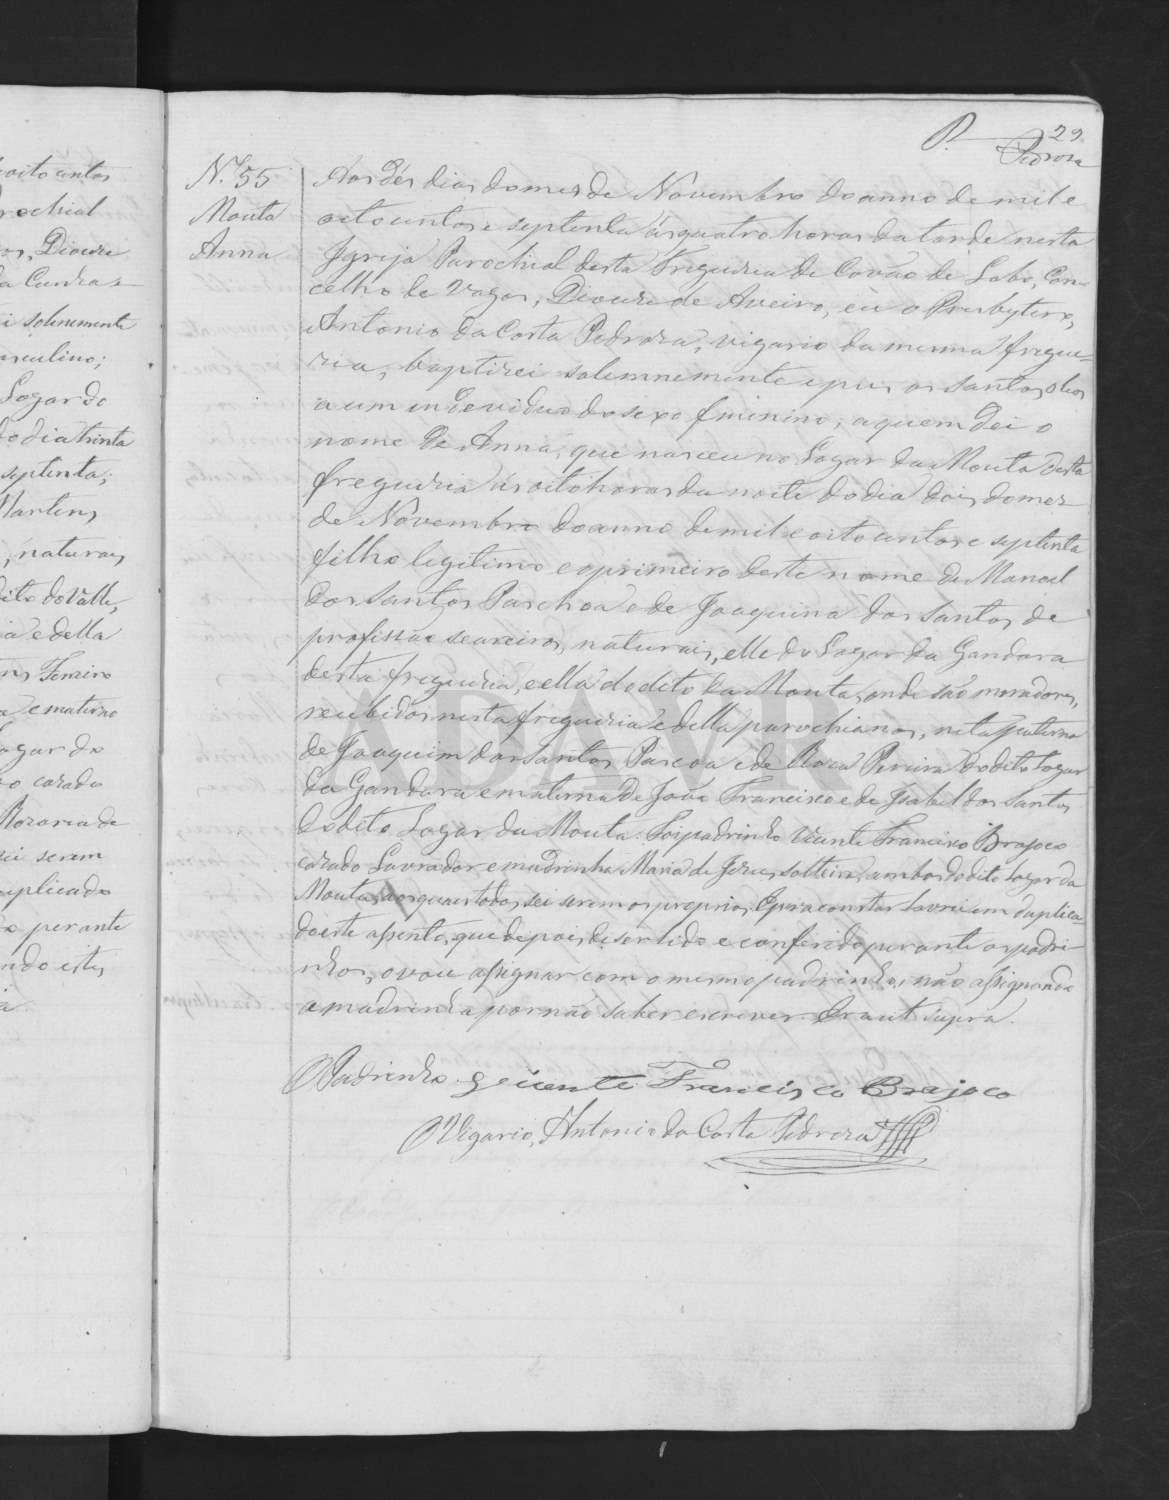 P. 29
Pedroza
oito centos
rochial
os, Diocese
i solemnemente
asculino;
Logar do
do dia trinta
septenta;
Martins
, naturaes
dito do Valle,
ia e della
e materno
Logar do
casado
Rozaria de
sei serem
uplicado
perante
ndo este,
N.º 55
Mouta
Anna
Aos dés dias do mes de Novembro do anno de mil e
oito centos e septenta ás quatro horas da tarde nesta
Igreja Parochial desta Freguezia de Covão de Lobo, Con-
celho de Vagos, Diocese de Aveiro, eu o Presbytero,
Antonio da Costa Pedroza, vigario da mesma fregue-
zia, baptizei solemnemente e puz os santos oleos
a um individuo do sexo feminino, a quem dei o
nome de Anna, que nasceu no Logar da Mouta desta
freguezia ás oito horas da noite do dia dois do mez
de Novembro do anno de mil e oito centos e septenta
filho legitimo e o primeiro deste nome de Manoel
dos Santos Paschoa e de Joaquina dos Santos de
profissão seareiros, naturais, elle do Logar da Gandara
desta freguezia, e ella do dito da Mouta, onde são moradores,
recebidos nesta freguezia e della parochianos, neta paterna
de Joaquim dos Santos Pascoa e de Roza Pereira do dito Logar
da Gandara e materna de João Francisco e de Isabel dos Santos,
do dito Logar da Mouta: Foi padrinho Vicente Francisco Brajoco
casado Lavrador e madrinha Maria de Jezus, solteira, ambos do dito logar da
Mouta, aos quaes todos sei serem os proprios. E para constar lavrei em duplica-
do este assento, que depois de ser lido e conferido perante os padri-
nhos, o vou assignar com o mesmo padrinho, não assignando
a madrinha por não saber escrever. Era ut supra.
O Padrinho Vicente Francisco Brajoco
O Vigario, Antonio da Costa Pedroza
ADAVR